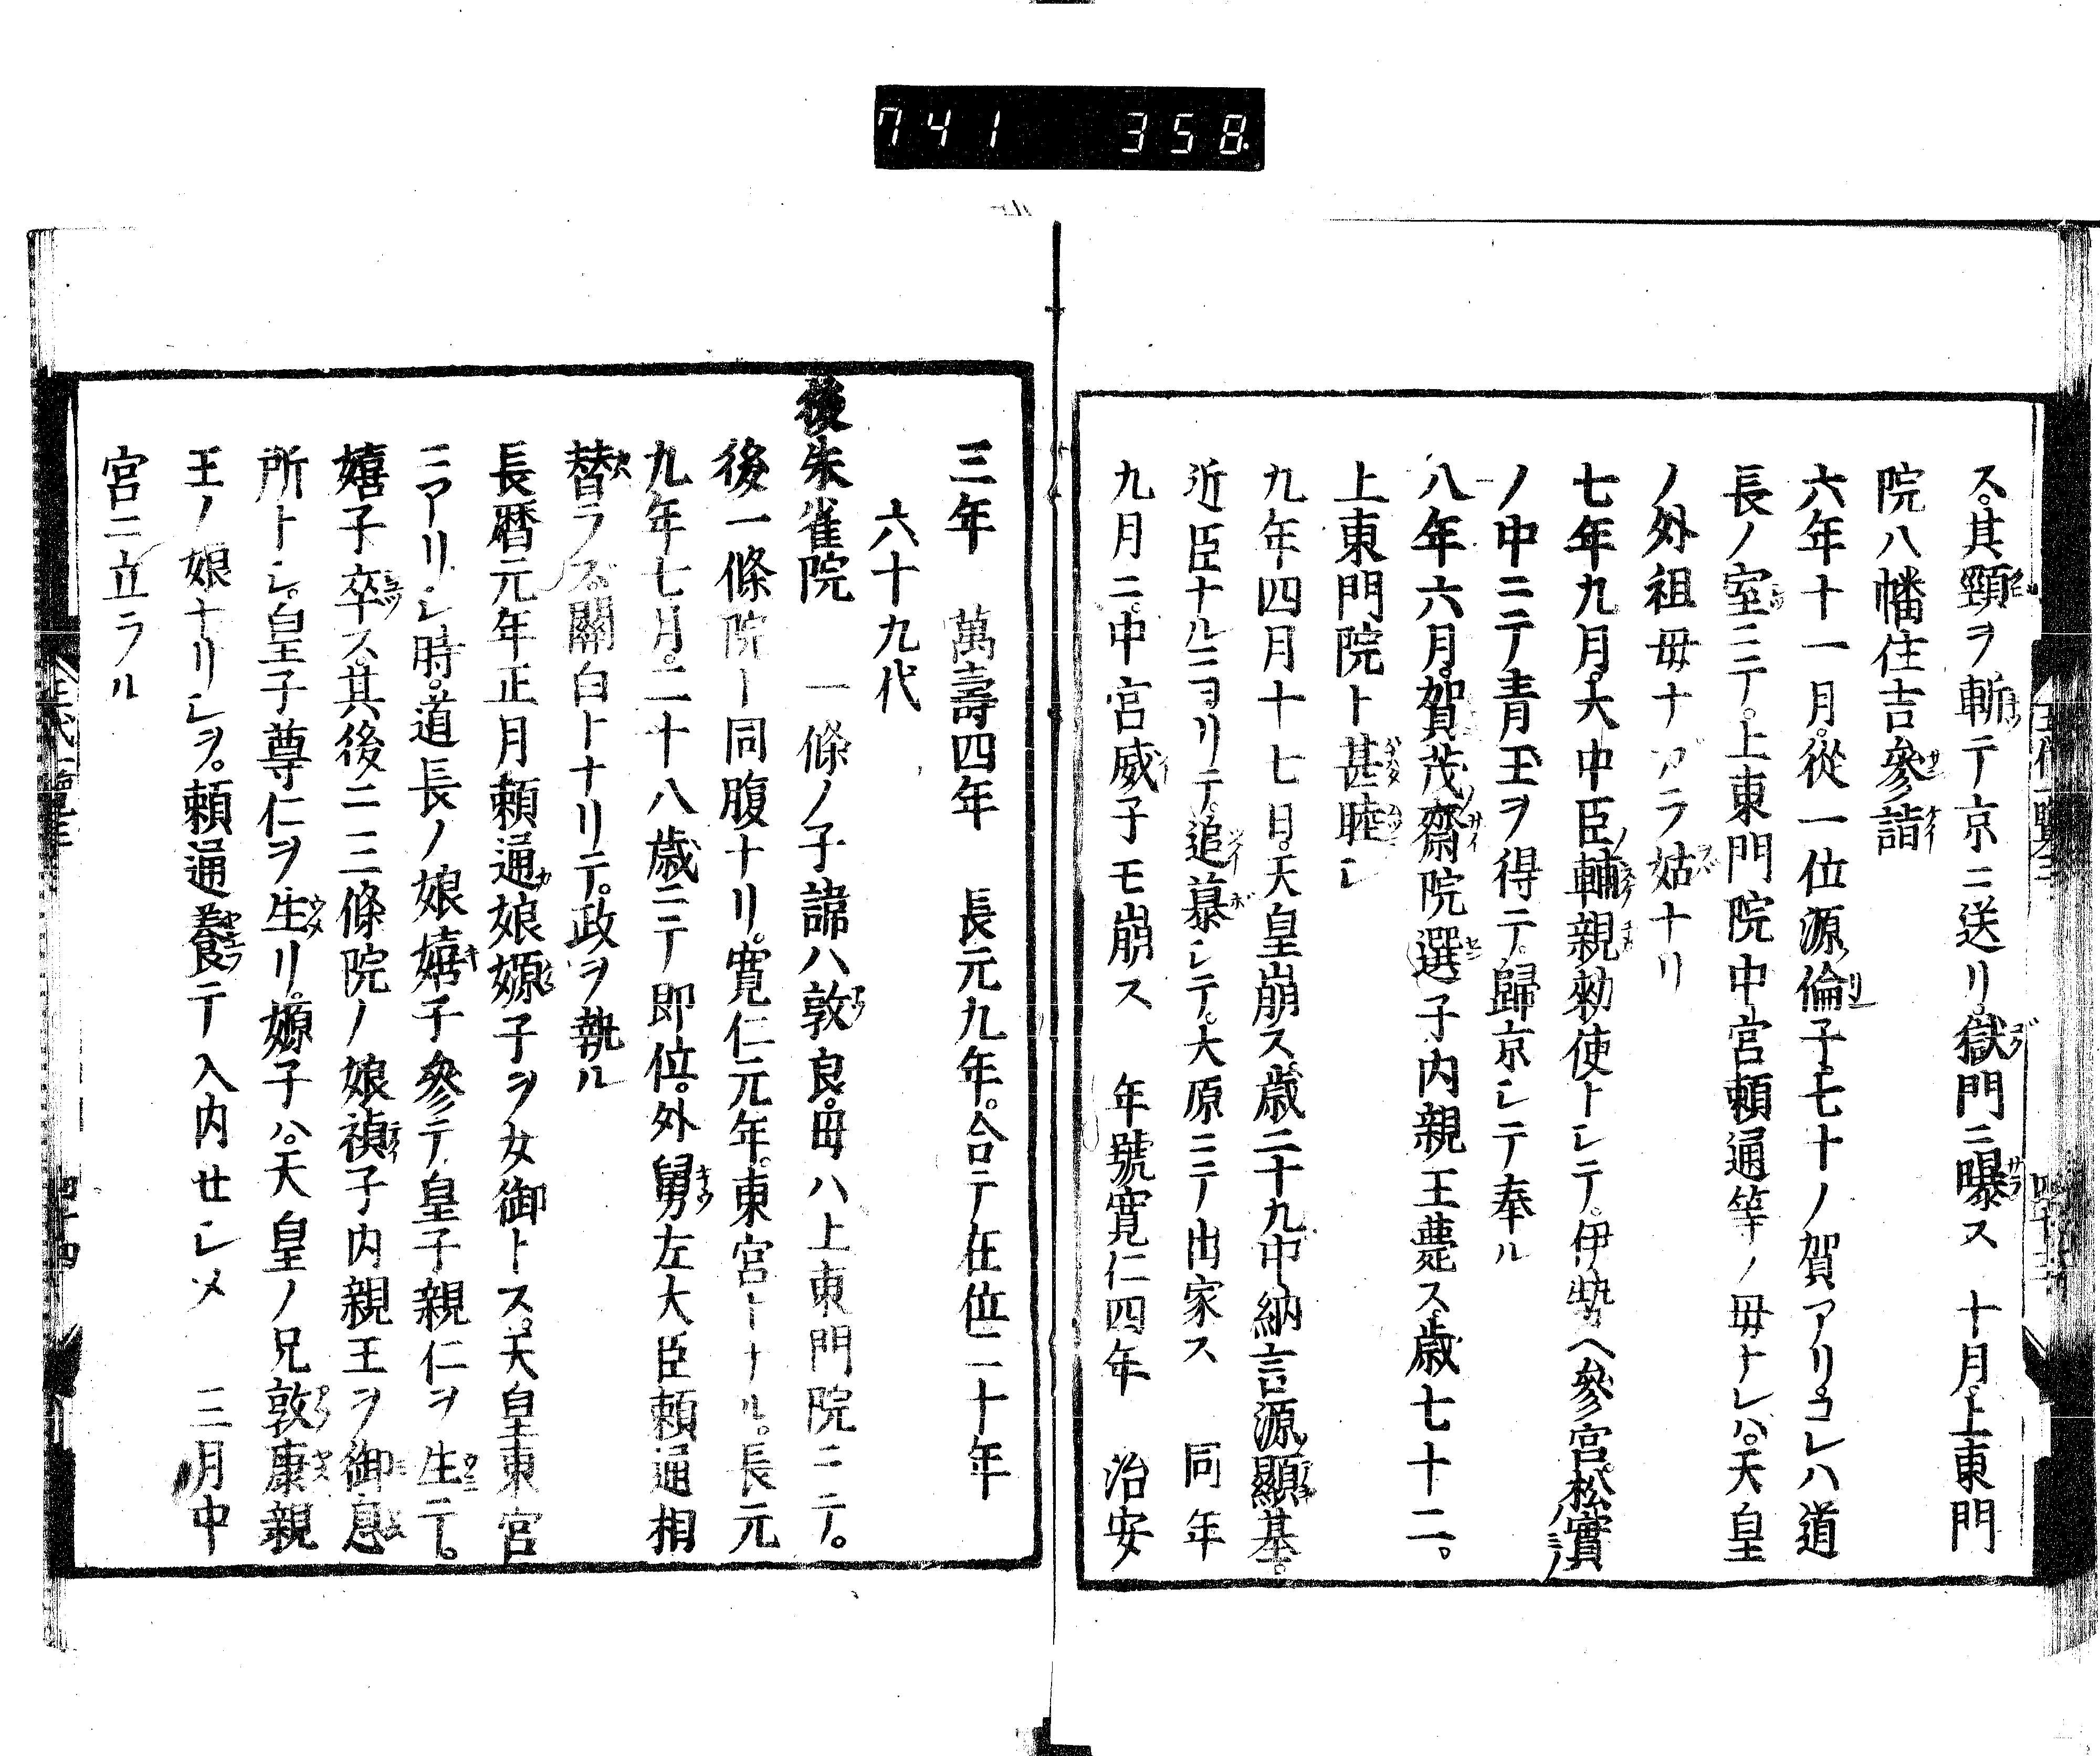 741 358.
ス。其頸ヲ斬テ京ニ送リ。獄門ニ曝ス 十月。上東門
院八幡住吉參詣
六年十一月。從一位源倫子。七十ノ賀アリ。コレハ道
長ノ室ニテ。上東門院中宮頼通等ノ母ナレハ。天皇
ノ外祖母ナガラ姑ナリ
七年九月。大中臣輔親勅使トシテ。伊勢ヘ參宮。松實
ノ中ニテ青玉ヲ得テ。歸京シテ奉ル
八年六月。賀茂齋院選子内親王薨ス。歳七十二。
上東門院ト甚睦シ
九年四月十七日。天皇崩ス。歳二十九。中納言源顯基。
近臣ナルニヨリテ。追慕シテ。大原ニテ出家ス 同年
九月ニ。中宮威子モ崩ス 年號寛仁四年 治安
三年 萬壽四年 長元九年。合テ在位二十年
六十九代
後朱雀院 一條ノ子諱ハ敦良。母ハ上東門院ニテ。
後一條院ト同腹ナリ。寛仁元年。東宮トナル。長元
九年七月。二十八歳ニテ即位。外舅左大臣頼通相
替ラズ。關白トナリテ。政ヲ執ル
長暦元年正月頼通娘嫄子ヲ女御トス。天皇東宮
ニアリシ時。道長ノ娘嬉子參テ皇子親仁ヲ生テ。
嬉子卒ス。其後ニ三條院ノ娘禎子内親王ヲ御息
所トシ。皇子尊仁ヲ生リ。嫄子ハ。天皇ノ兄敦康親
王ノ娘ナリシヲ。頼通養テ入内サセシメ 三月中
宮ニ立ラル